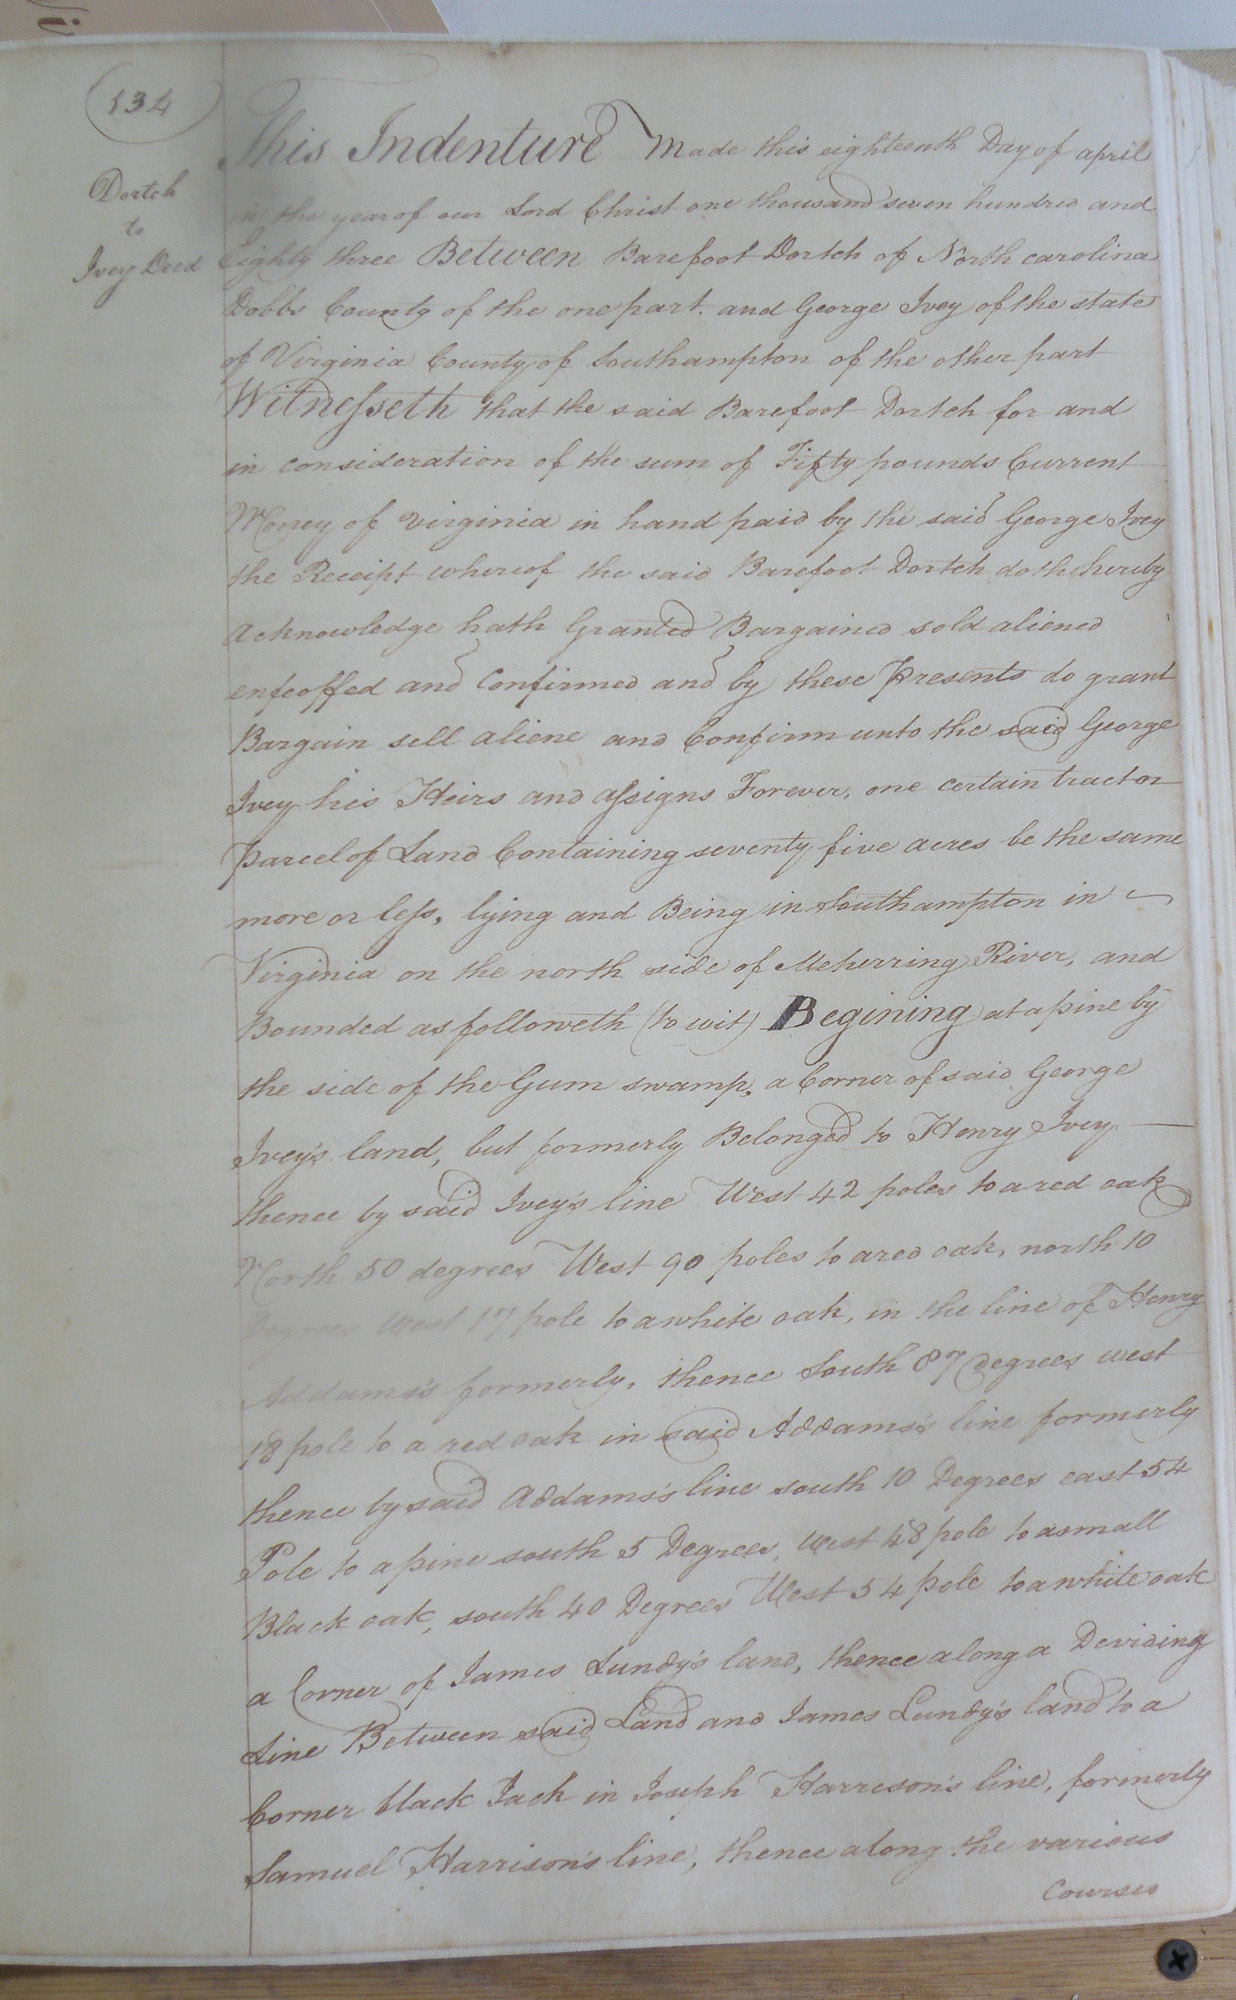 134
Dortch
to
Ivey Deed
This Indenture Made this eighteenth Day of april
in the year of our Lord Christ one thousand seven hundred and
Eighty three Between Barefoot Dortch of North carolina
Dobbs County of the one part. and George Ivey of the state
of Virginia County of Southampton of the other part
Witnesseth that the said Barefoot Dortch for and
in consideration of the sum of Fifty pounds Current
Money of Virginia in hand paid by the said George Ivey
the Receipt whereof the said Barefoot Dortch doth hereby
Acknowledge hath Granted Bargained sold aliened
enfeoffed and Confirmed and by these Presents do grant
Bargain sell aliene and Confirm unto the said George
Ivey his Heirs and assigns Forever, one certain tract or
parcel of Land Containing seventy five acres be the same
more or less, lying and Being in Southampton in
Virginia on the north side of Meherring River, and
Bounded as followeth (to wit) Begining at a pine by
the side of the Gum swamp, a Corner of said George
Ivey's land, but formerly Belonged to Henry Ivey
thence by said Ivey's line West 42 poles to a red oak
North 50 degrees West 90 poles to a red oak, north 10
Degrees West 17 pole to a white oak, in the line of Henry
Addams's formerly, thence South 87 degrees west
18 pole to a red oak in said Addams's line formerly
thence by said Addams's line south 10 Degrees east 54
Pole to a pine south 5 Degrees, West 48 pole to a small
Black oak, south 40 Degrees West 54 pole to a white oak
a Corner of James Lundy's land, thence along a Deviding
Line Between said Land and James Lundy's land to a
Corner black Jack in Joseph Harreson's line, formerly
Samuel Harrison's line, thence along the various
Courses